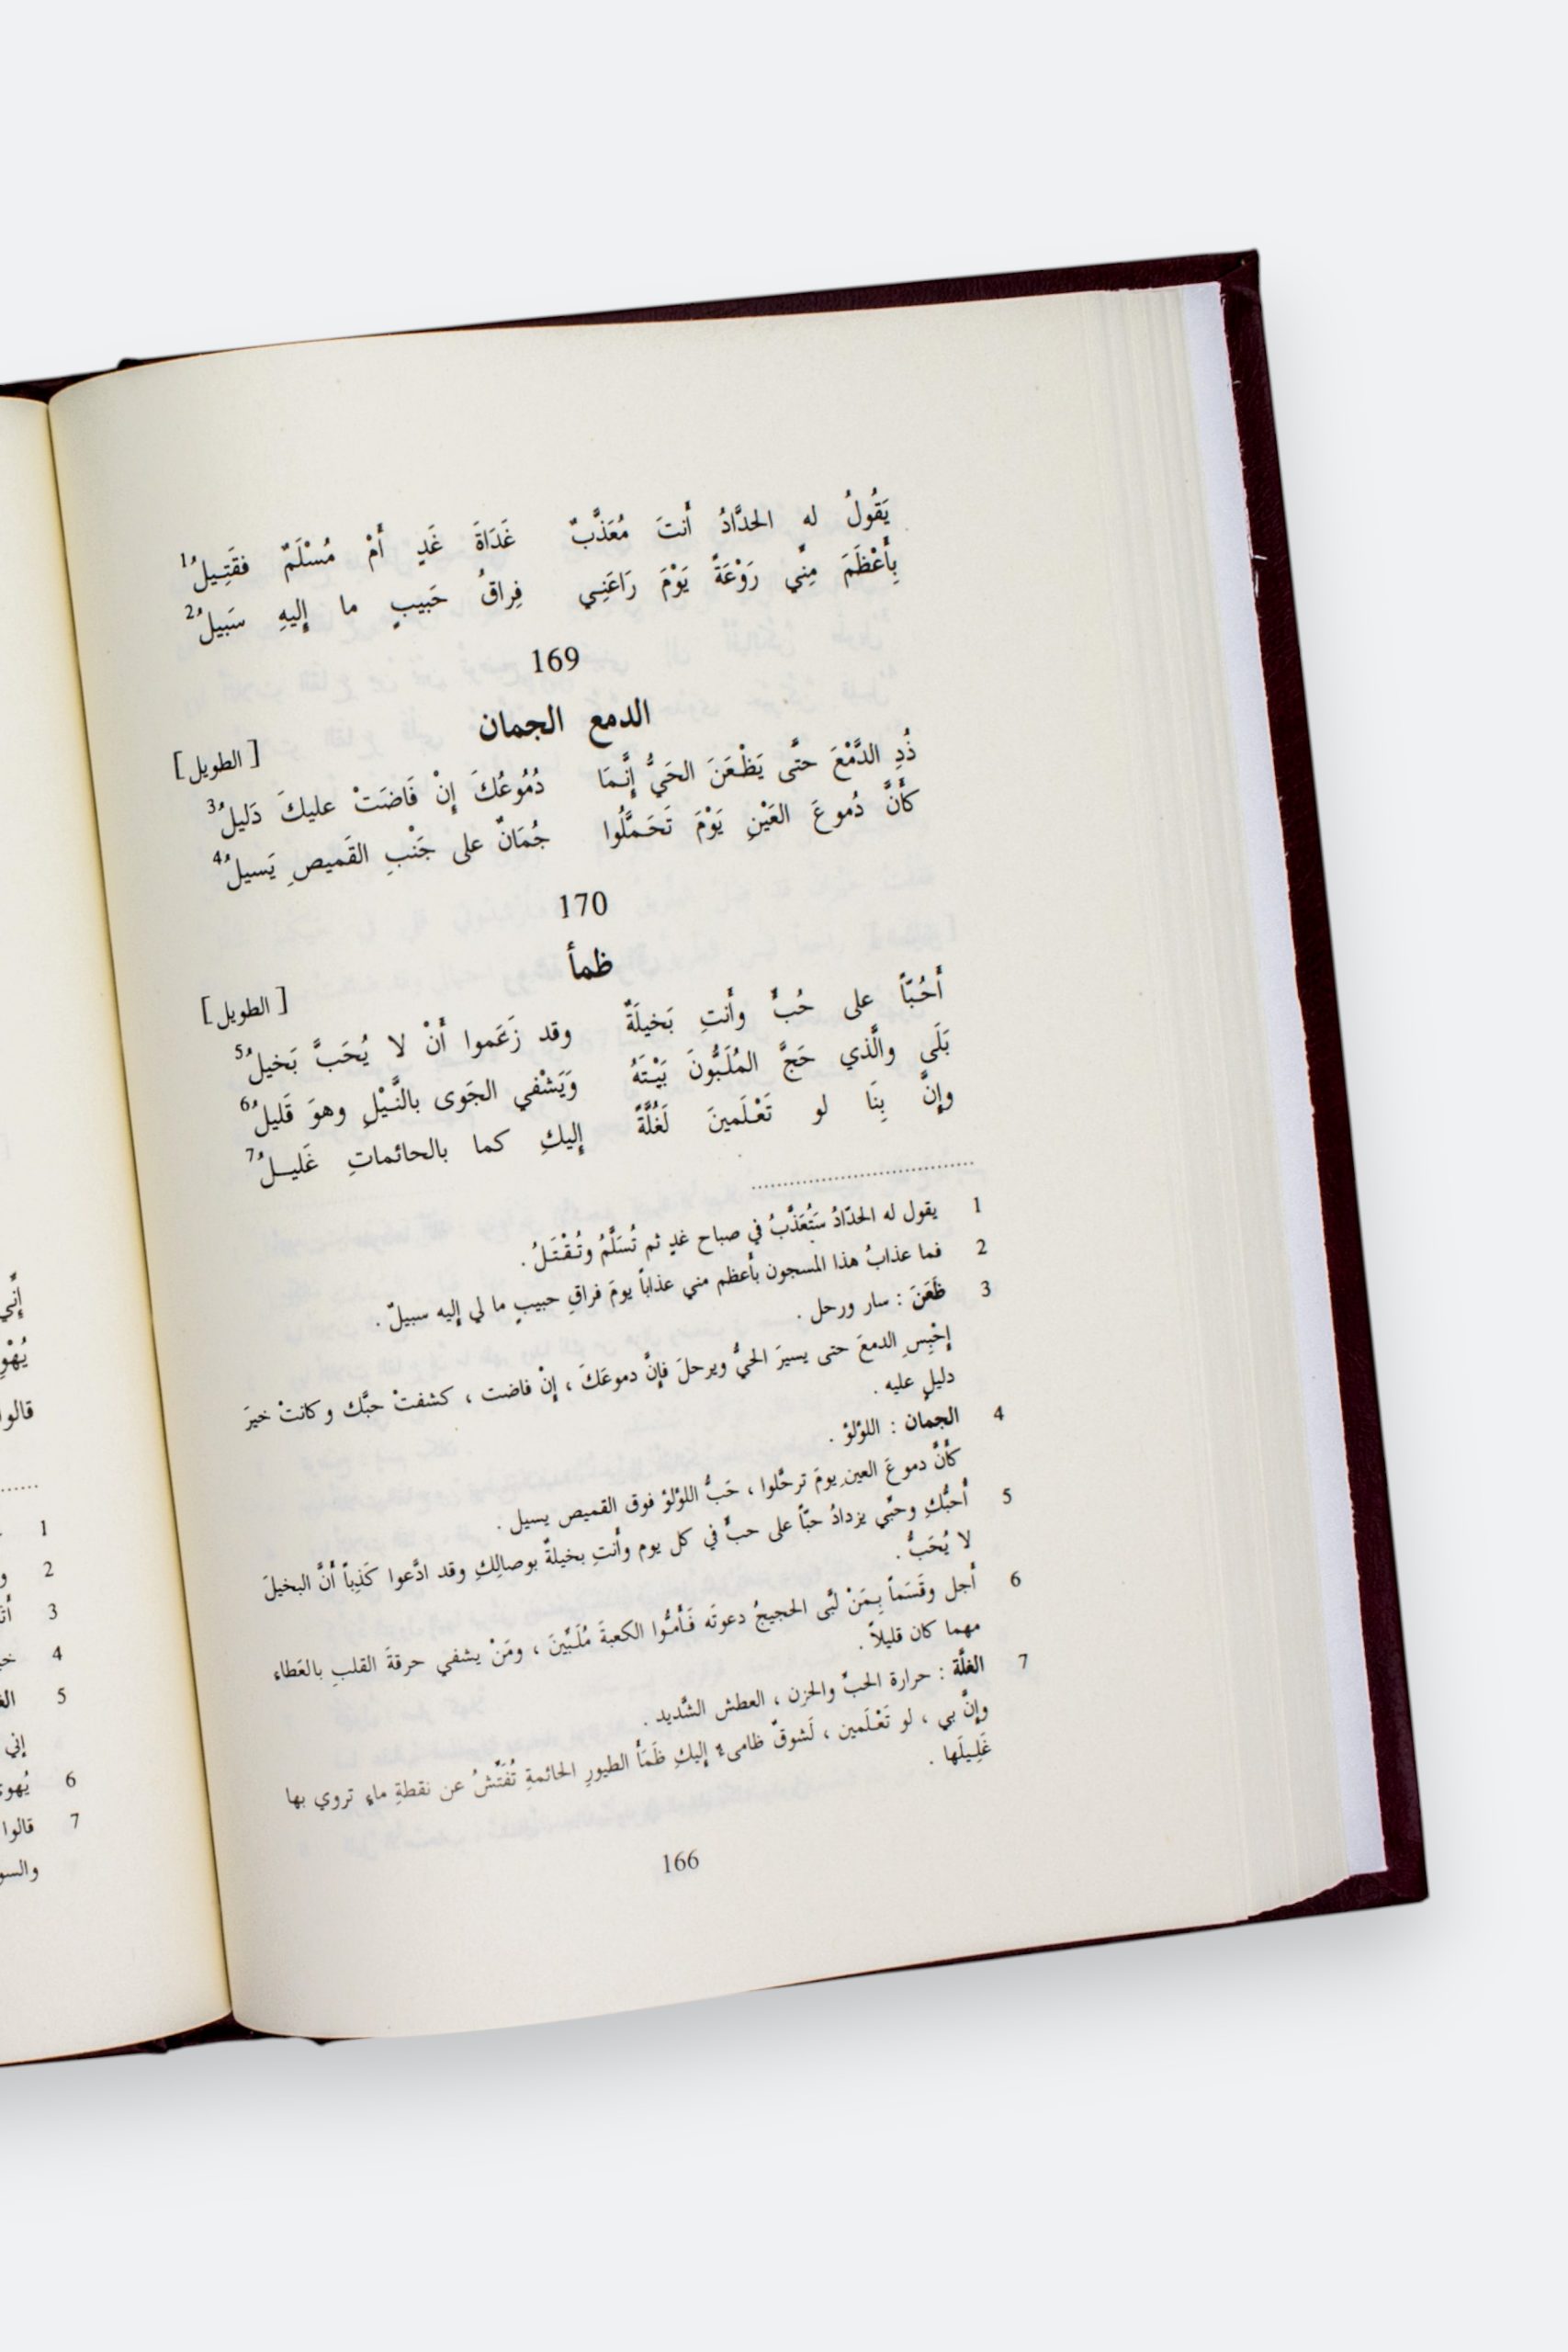 يَقُولُ له الحدَّادُ أنتَ مُعَذَّبٌ غَدَاةَ غَدٍ أَمْ مُسْلَمٌ فقَتِيلُ1
بِأَعْظَمَ مِنِّي رَوْعَةً يَوْمَ رَاعَنِي فِراقُ حَبيبٍ ما إليهِ سَبيلُ2
169
الدمع الجمان
[ الطويل ]
ذُدِ الدَّمْعَ حتَّى يَظْعَنَ الحَيُّ إنَّمَا دُمُوعُكَ إنْ فَاضَتْ عليكَ دَليلُ3
كأنَّ دُموعَ العَيْنِ يَوْمَ تَحَمَّلُوا جُمَانٌ على جَنْبِ القَميصِ يَسيلُ4
170
ظمأ
[ الطويل ]
أَحُبّاً على حُبٍّ وأنتِ بَخيلَةٌ وقد زَعَموا أنْ لا يُحَبَّ بَخيلُ5
بَلَى والَّذي حَجَّ المُلَبُّونَ بَيْتَهُ وَيَشْفي الجَوى بالنَّيْلِ وهوَ قَليلُ6
وإنَّ بِنَا لو تَعْلَمينَ لَغُلَّةً إليكِ كما بالحائماتِ غَليلُ7
1 يقول له الحدّادُ سَتُعَذَّبُ في صباح غدٍ ثم تُسَلَّمُ وتُقْتَلُ .
2 فما عذابُ هذا المسجون بأعظم مني عذاباً يومَ فراقِ حبيبٍ ما لي إليه سبيلٌ .
3 ظَعَنَ : سار ورحل .
إحْبِسِ الدمعَ حتى يسيرَ الحيُّ ويرحلَ فإنَّ دموعَكَ ، إنْ فاضت ، كشفتْ حبَّك وكانتْ خيرَ
دليلٍ عليه .
4 الجمان : اللؤلؤ .
كأنَّ دموعَ العينِ يومَ ترحَّلوا ، حَبُّ اللؤلؤ فوق القميص يسيل .
5 أحبُّكِ وحبِّي يزدادُ حبّاً على حبٍّ في كل يوم وأنتِ بخيلةٌ بوصالِكِ وقد ادَّعوا كَذِباً أنَّ البخيلَ
لا يُحَبُّ .
6 أجل وقَسَماً بِمَنْ لبَّى الحجيجُ دعوتَه فَأَمُّوا الكعبةَ مُلَبِّينَ ، ومَنْ يشفي حرقةَ القلبِ بالعَطاء
مهما كان قليلاً .
7 الغلَّة : حرارة الحبّ والحزن ، العطش الشَّديد .
وإنَّ بي ، لو تَعْلَمين ، لَشوقٌ ظامىء إليكِ ظَمَأَ الطيورِ الحائمةِ تُفَتِّشُ عن نقطةِ ماءٍ تروي بها
غَلِيلَها .
166
إنِّي
قالوا
1
2 و
3
4
5
إني
6
7 قالوا